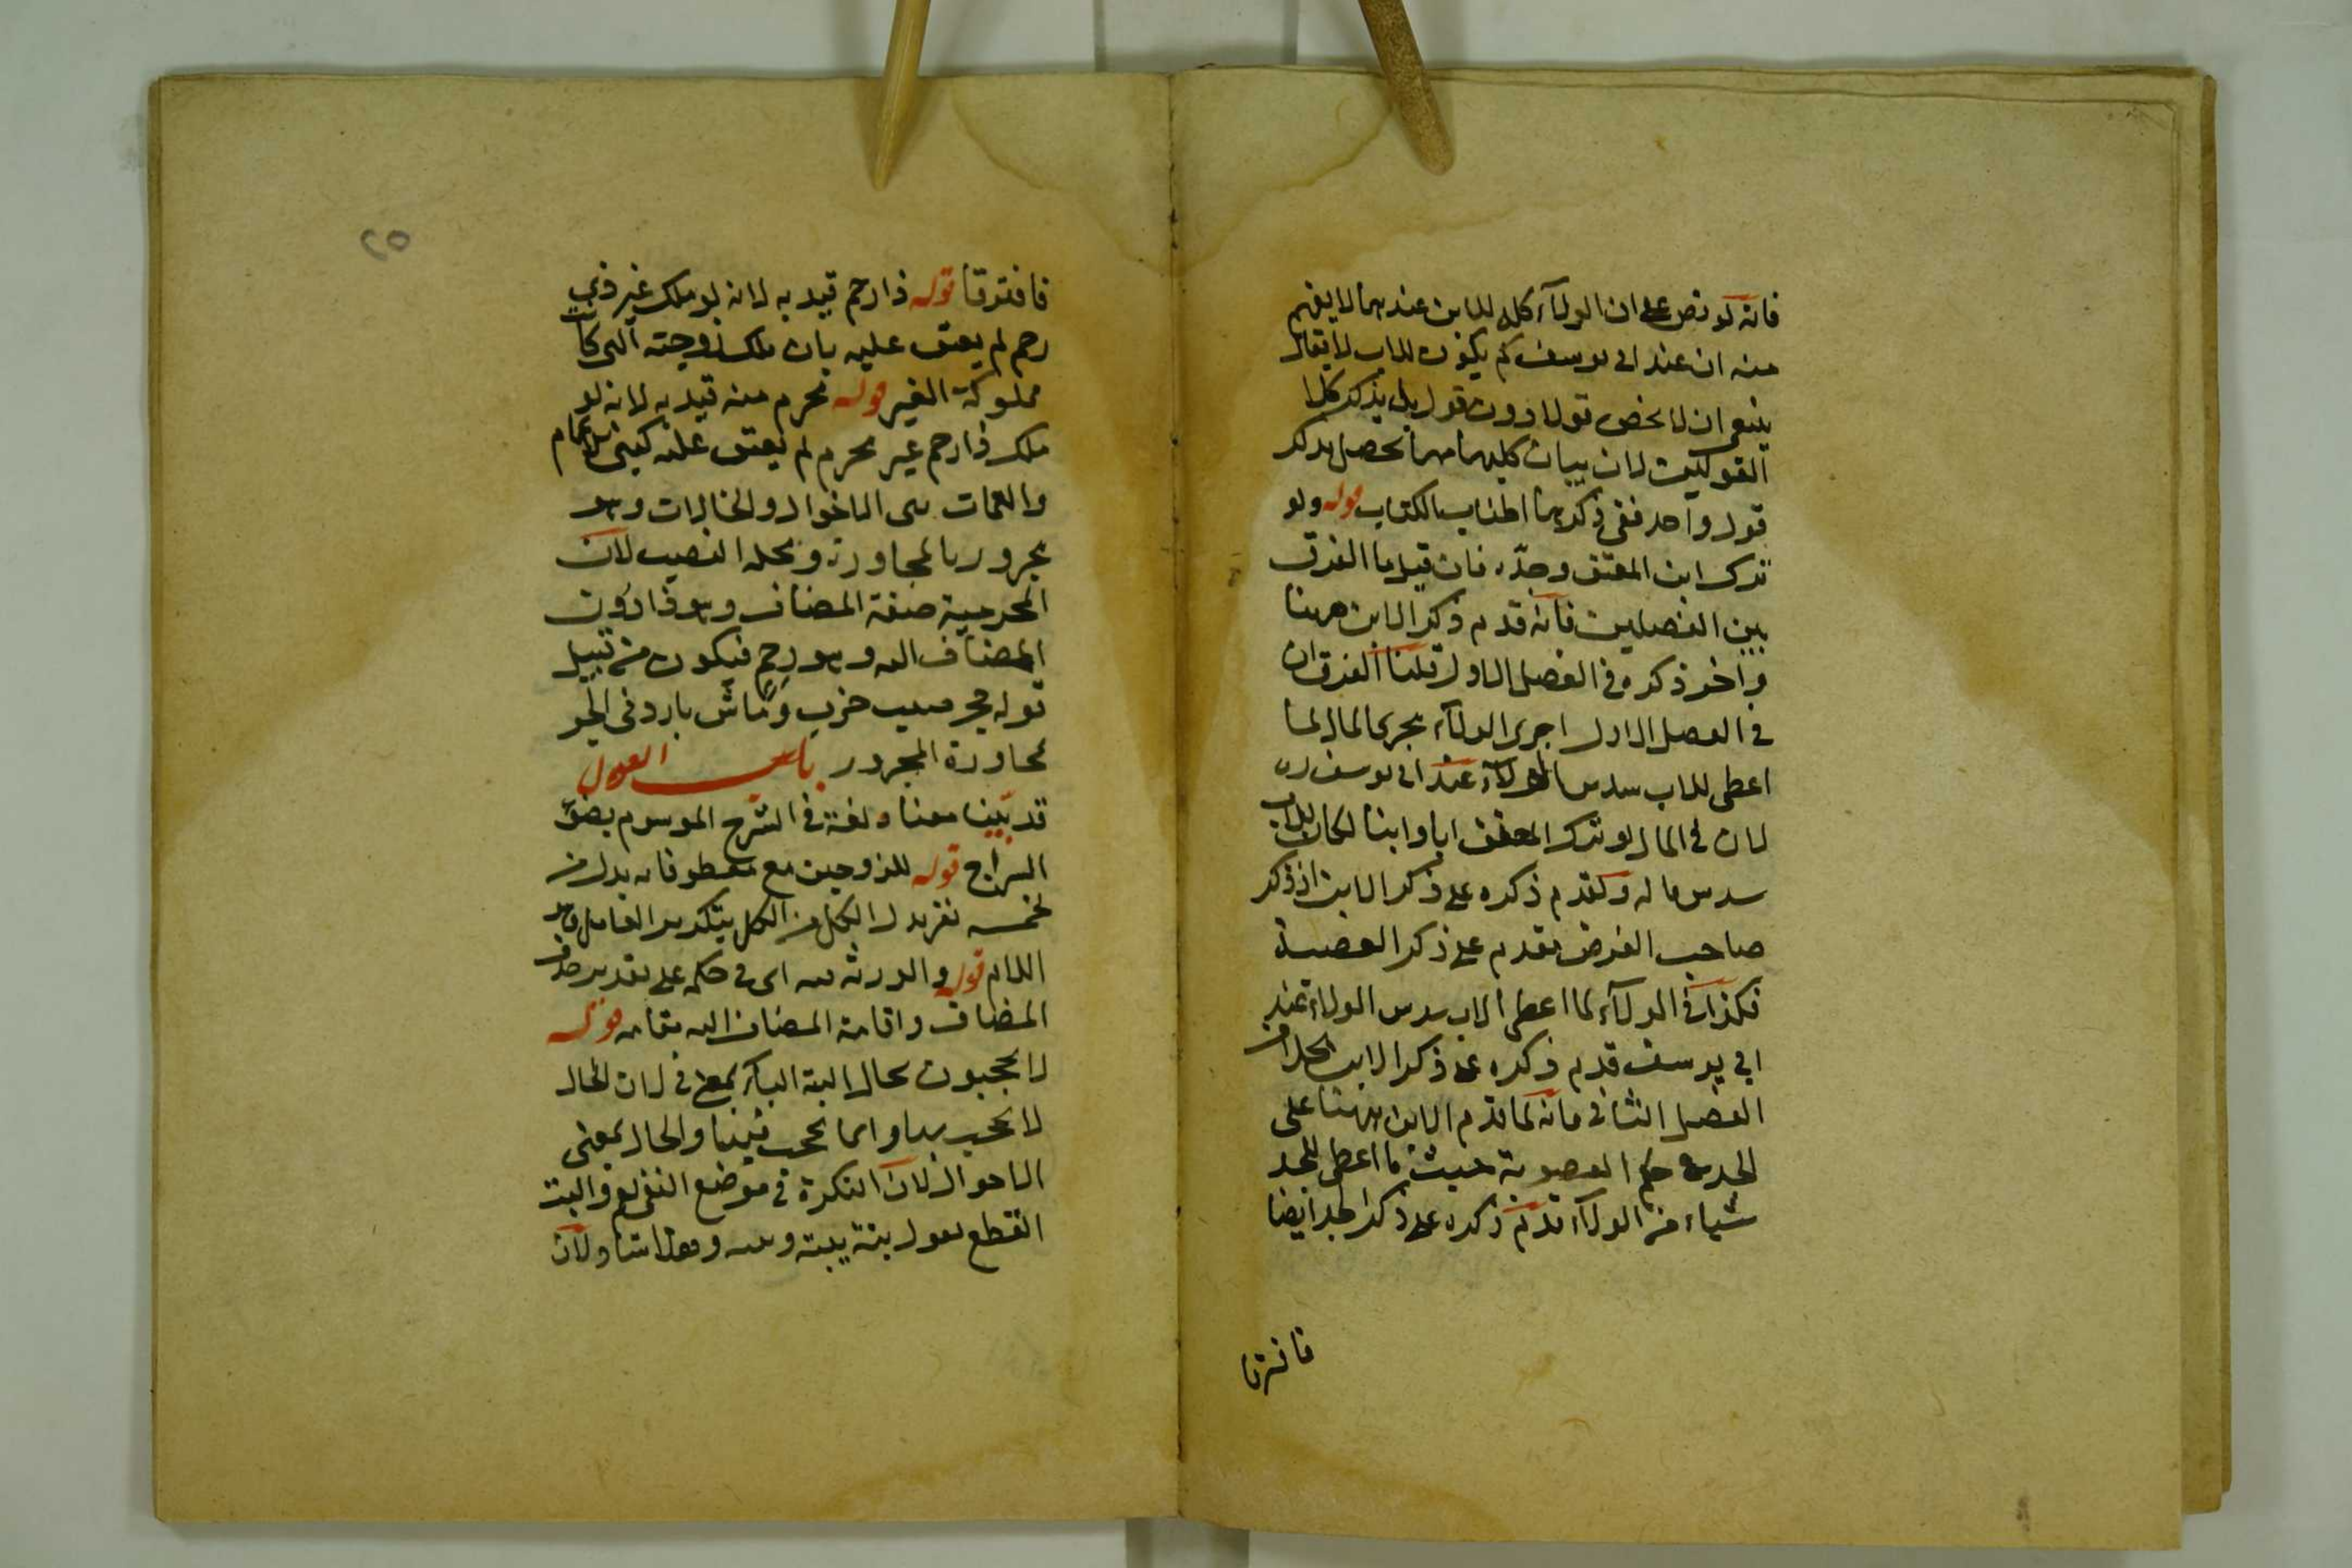 فانه لو نص على ان الولآء كله للابن عندهما لا يفهم
منه ان عند ابى يوسف كم يكون للاب لا يقال
ينبغى ان لا يخص قولا دون قول بل يذكر كلا
القولين لان بيان كليهما مهما يحصل بذكر
قول واحد ففى ذكرهما اطناب الكتاب قوله ولو
ترك ابن المعتق وجدّه فان قيل ما الفرق
بين الفصلين فانه قدم ذكر الابن ههنا
واخر ذكره فى الفصل الاول قلنا الفرق ان
فى الفصل الاول اجرى الولآء مجرى المال لما
اعطى للاب سدس الولآء عند ابى يوسف ره
لان فى المال لو ترك المعتق ابا وابنا لكان للاب
سدس ماله وتقدم ذكره على ذكر الابن اذ ذكر
صاحب الفرض مقدم على ذكر العصبة
فكذا فى الولآء لما اعطى الاب سدس الولاء عند
ابى يوسف قدم ذكره على ذكر الابن بخلاف
الفصل الثانى فانه لما قدم الابن ههنا على
الجد فى حكم العصوبة حيث ما اعطى للجد
شياء من الولآء قدم ذكره على ذكر الجد ايضا
فافترقا
٢٥
فافترقا قوله ذا رحم قيد به لانه لو ملك غير ذى
رحم لم يعتق عليه بان ملك زوجته التى كانت
مملوكة الغير قوله محرم منه قيد به لانه لو
ملك ذا رحم غير محرم لم يعتق عليه كبنى الاعمام
والعمات بنى الاخوال والخالات وهو
مجرور بالمجاورة ومحله النصب لان
المحرمية صفة المضاف وهو ذا دون
المضاف اليه وهو رحم فيكون من قبيل
قوله جحر ضب خرب وماش بارد فى الجر
لمجاورة المجرور باب العول
قد بيّنا معناه لغة فى الشرح الموسوم بضوء
السراج قوله للزوجين مع معطوفاته بدل من
لخمسة نفر بدل الكل من الكل بتكرير العامل وهو
اللام قوله والورثة فيه اى فى حكمه على تقدير حذف
المضاف واقامة المضاف اليه مقامه قوله
لا يحجبون بحال البتة الباء بمعنى فى لان الحال
لا يحجب بها وانما يحجب فيها والحال بمعنى
الاحوال لان النكرة فى موضع النفى تعم والبتة
القطع يقول بتة يبته ويبته وهذا شاذ لان